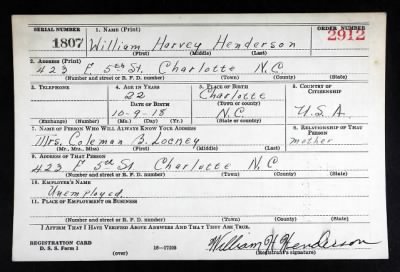 SERIAL NUMBER 1. NAME (Print) ORDER NUMBER
1807 William Harvey Henderson 2912
(First) (Middle) (Last)
2. ADDRESS (Print)
423 E. 5th St. Charlotte N.C.
(Number and street or R. F. D. number) (Town) (County) (State)
3. TELEPHONE 4. AGE IN YEARS 5. PLACE OF BIRTH 6. COUNTRY OF CITIZENSHIP
22 Charlotte
DATE OF BIRTH (Town or county)
10-9-18 N.C. U.S.A.
(Exchange) (Number) (Mo.) (Day) (Yr.) (State or country)
7. NAME OF PERSON WHO WILL ALWAYS KNOW YOUR ADDRESS 8. RELATIONSHIP OF THAT PERSON
Mrs. Coleman B. mother
(Mr., Mrs., Miss) (First) (Middle) (Last)
9. ADDRESS OF THAT PERSON
423 E 5th St Charlotte N.C.
(Number and street or R. F. D. number) (Town) (County) (State)
10. EMPLOYER'S NAME
Unemployed
11. PLACE OF EMPLOYMENT OR BUSINESS
(Number and street or R. F. D. number) (Town) (County) (State)
I AFFIRM THAT I HAVE VERIFIED ABOVE ANSWERS AND THAT THEY ARE TRUE.
REGISTRATION CARD
D. S. S. Form 1 (over) 16-17105 William H Henderson
(Registrant's signature)